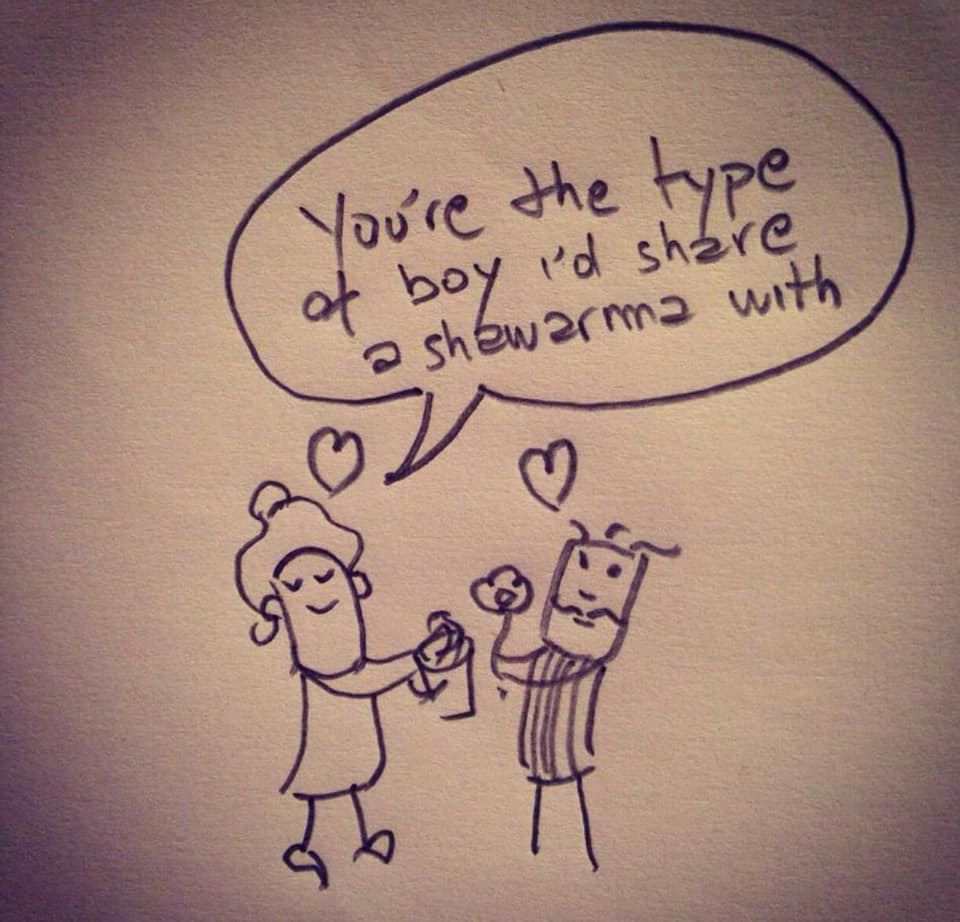 You're the type
of boy i'd share
a shawarma with